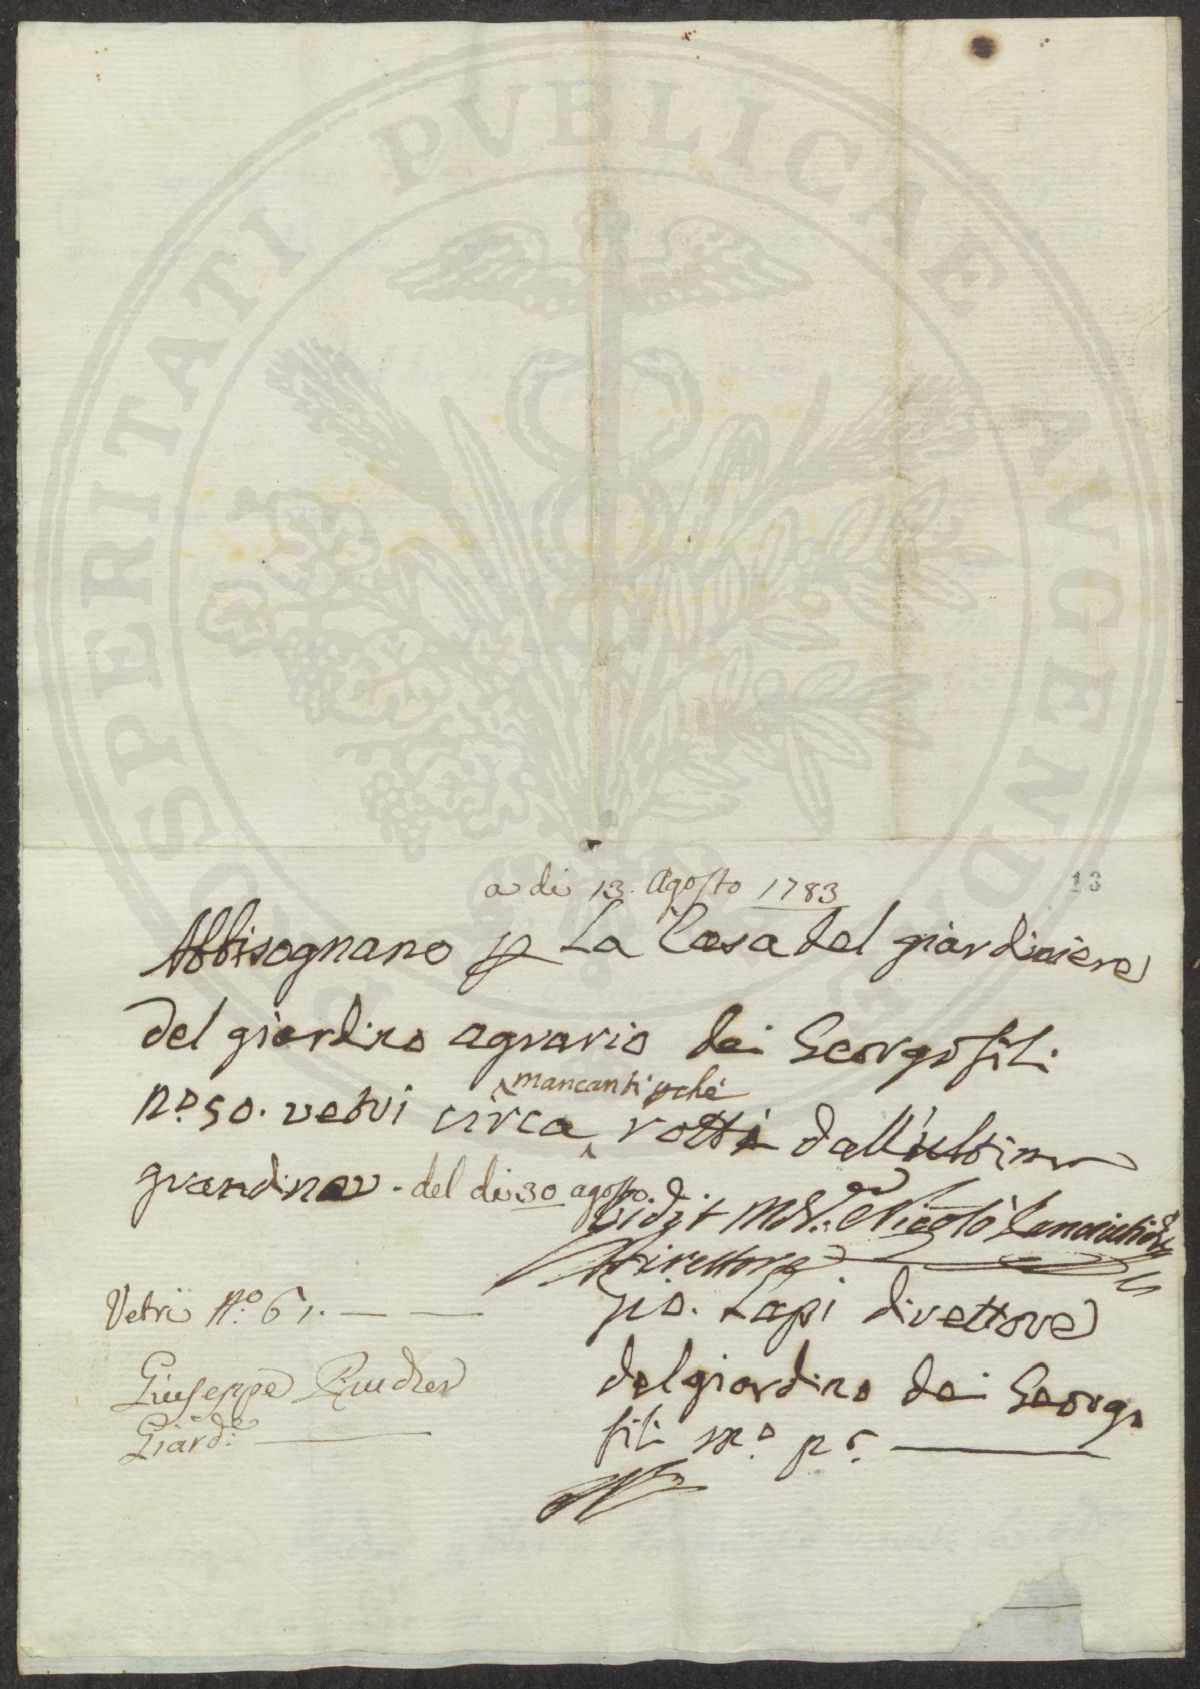 PROSPERITATI PVBLICAE AVGENDAE
a di 13. Agosto 1783
13
Abbisognano p La Casa del giardiniere
del giardino agrario dei Georgofili
n.o 50. vetri circa mancanti pchè rotti dall'ultima
grandina. del di 30 agosto.
Vidit Nicolò
Direttore
Gio. Lapi direttore
del giardino dei Georgo
fili m.o p.
Vetri N.o 61.
Giuseppe
Giard.e